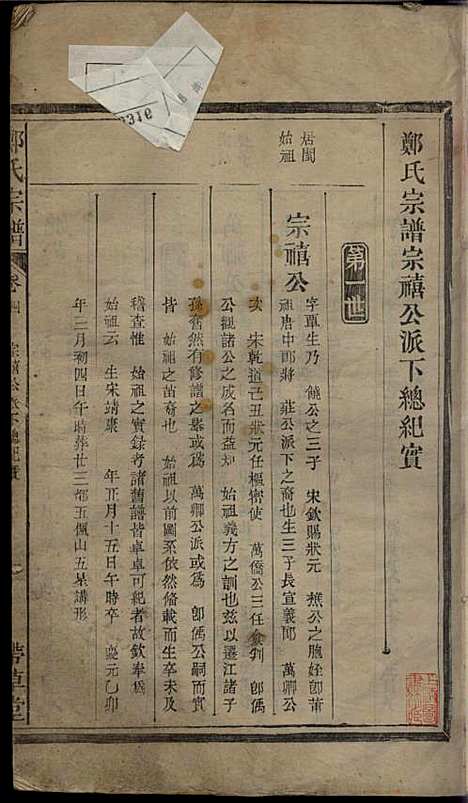 鄭氏宗譜宗禧公派下總紀實
第一世
居閩
始祖
宗禧公
字覃生乃 饒公之三子 宋欽賜狀元 樵公之胞姪卽莆
祖唐中郎將 莊公派下之裔也生三子長宣義郎 萬卿公
次 宋乾道己丑狀元任樞密使 萬僑公三任僉判 卽僞
公觀諸公之成名而益知 始祖義方之訓也玆以遷江諸子
孫奮然有修譜之舉或爲 萬卿公派或爲 卽僞公嗣而實
皆 始祖之苗裔也 始祖以前圖系依然俻載而生卒未及
稽查惟 始祖之實録考諸舊譜皆卓卓可紀者故欽奉爲
始祖云 生宋靖康 年正月十五日午時卒 慶元乙卯
年三月初四日午時葬廿三都五佩山五星講形
鄭氏宗譜
卷四
宗禧公派下總紀實
一
帶草堂